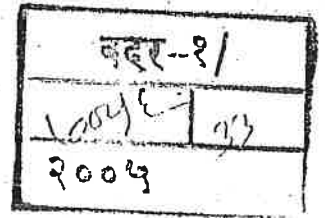 वदर--१/
१००५६ ३३
२००५